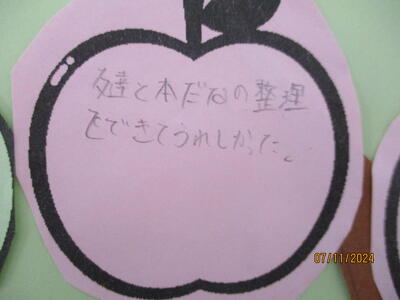 友達と本だなの整理
をできてうれしかった。
07/11/2024